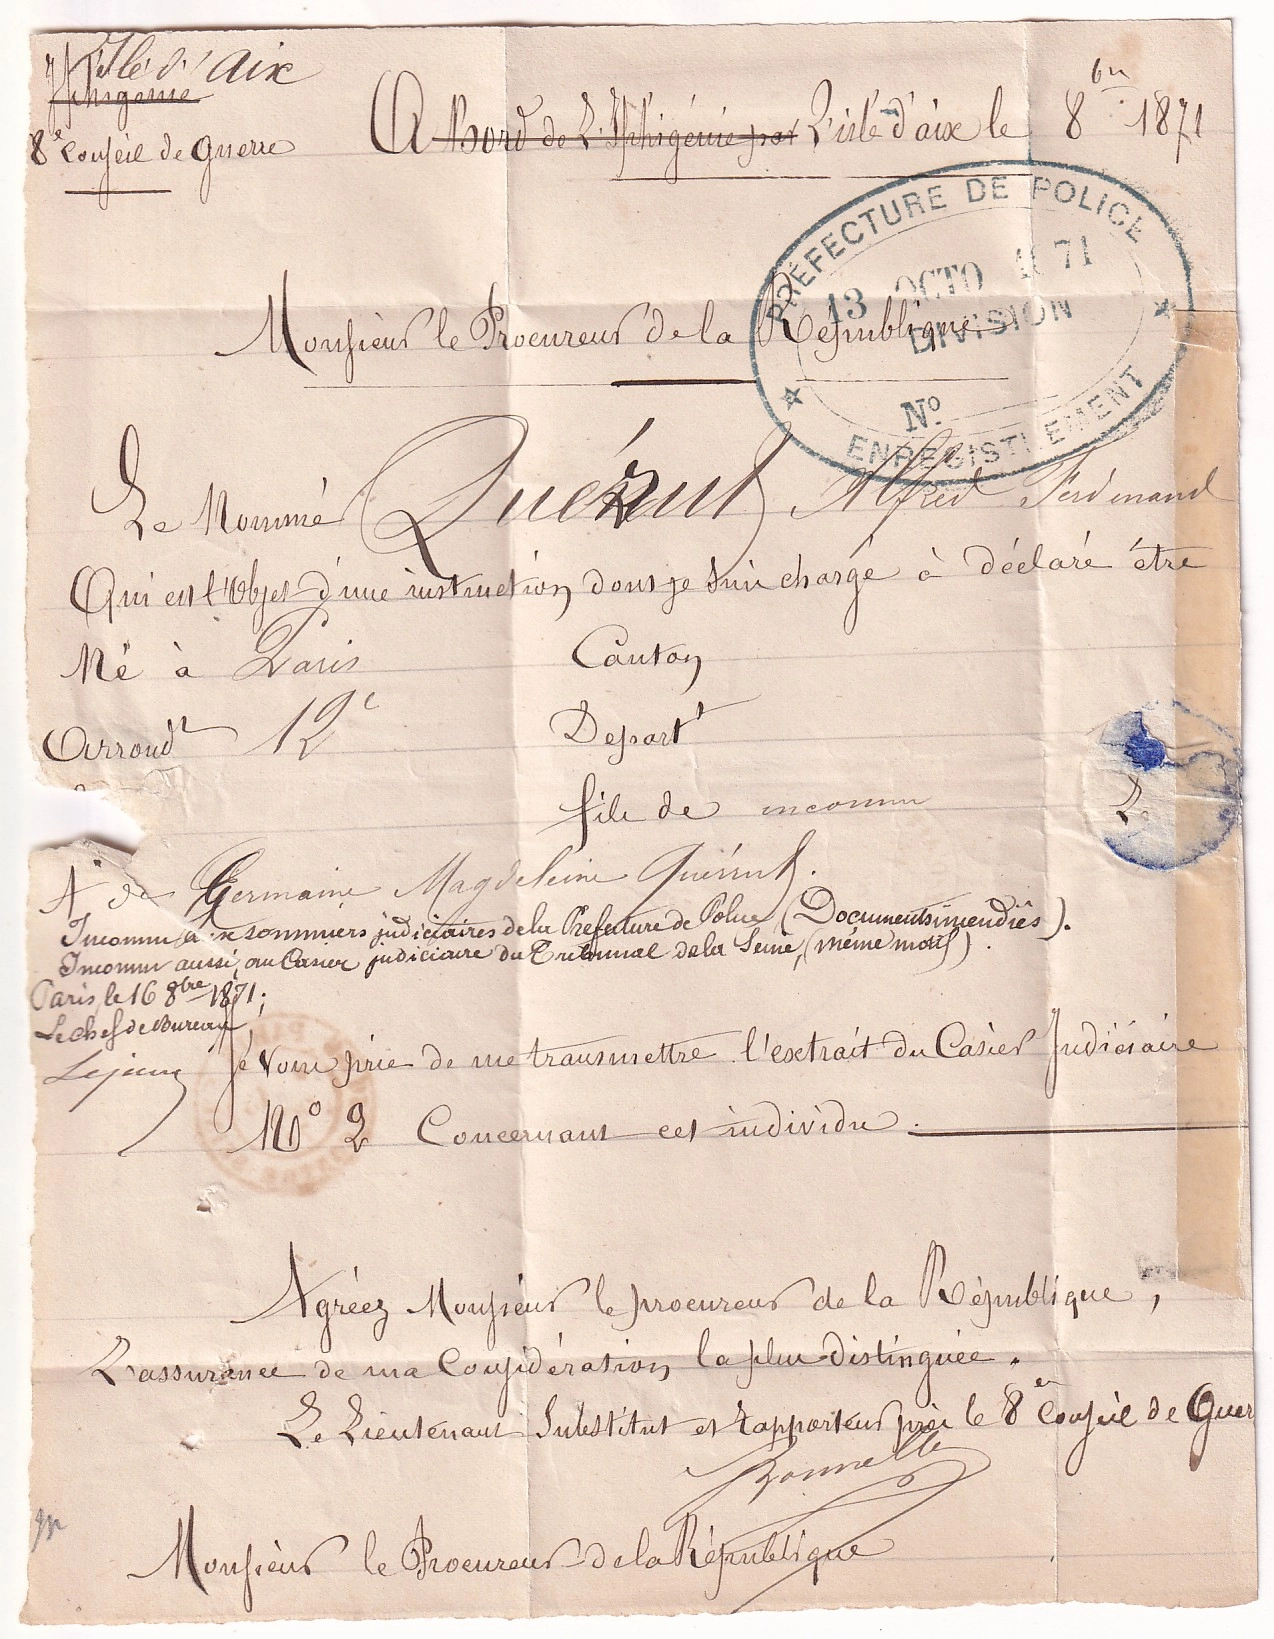 L'Ile d'Aix
Iphigenie
8e Conseil de Guerre
A Bord de L'Iphigénie par L'isle d'aix le 8bre 1871
PRÉFECTURE DE POLICE
13 OCTO 1871
DIVISION
No
ENREGISTREMENT
Monsieur le Procureur de la République
Le Nommé Quérut Alfred Ferdinand
Qui est l'Objet d'une instruction dont je suis chargé à déclaré être
Né à Paris Canton
Arrondt 12e Départt
fils de inconnu
&
de Germaine Magdeleine Quérut.
Inconnu aux sommiers judiciaires de la Préfecture de Police (Documents incendiés).
Inconnu aussi, au Casier judiciaire du Tribunal de la Seine, (même motif).
Paris, le 16 8bre 1871;
Le chef de Bureau,
Lejeune
Je Vous prie de me transmettre l'extrait du Casier Judiciaire
No 2 Concernant cet individu.
Agréez Monsieur le procureur de la République,
L'assurance de ma Considération la plus distinguée.
Le Lieutenant Substitut et rapporteur près le 8en Conseil de Guer
Monsieur le Procureur de la République